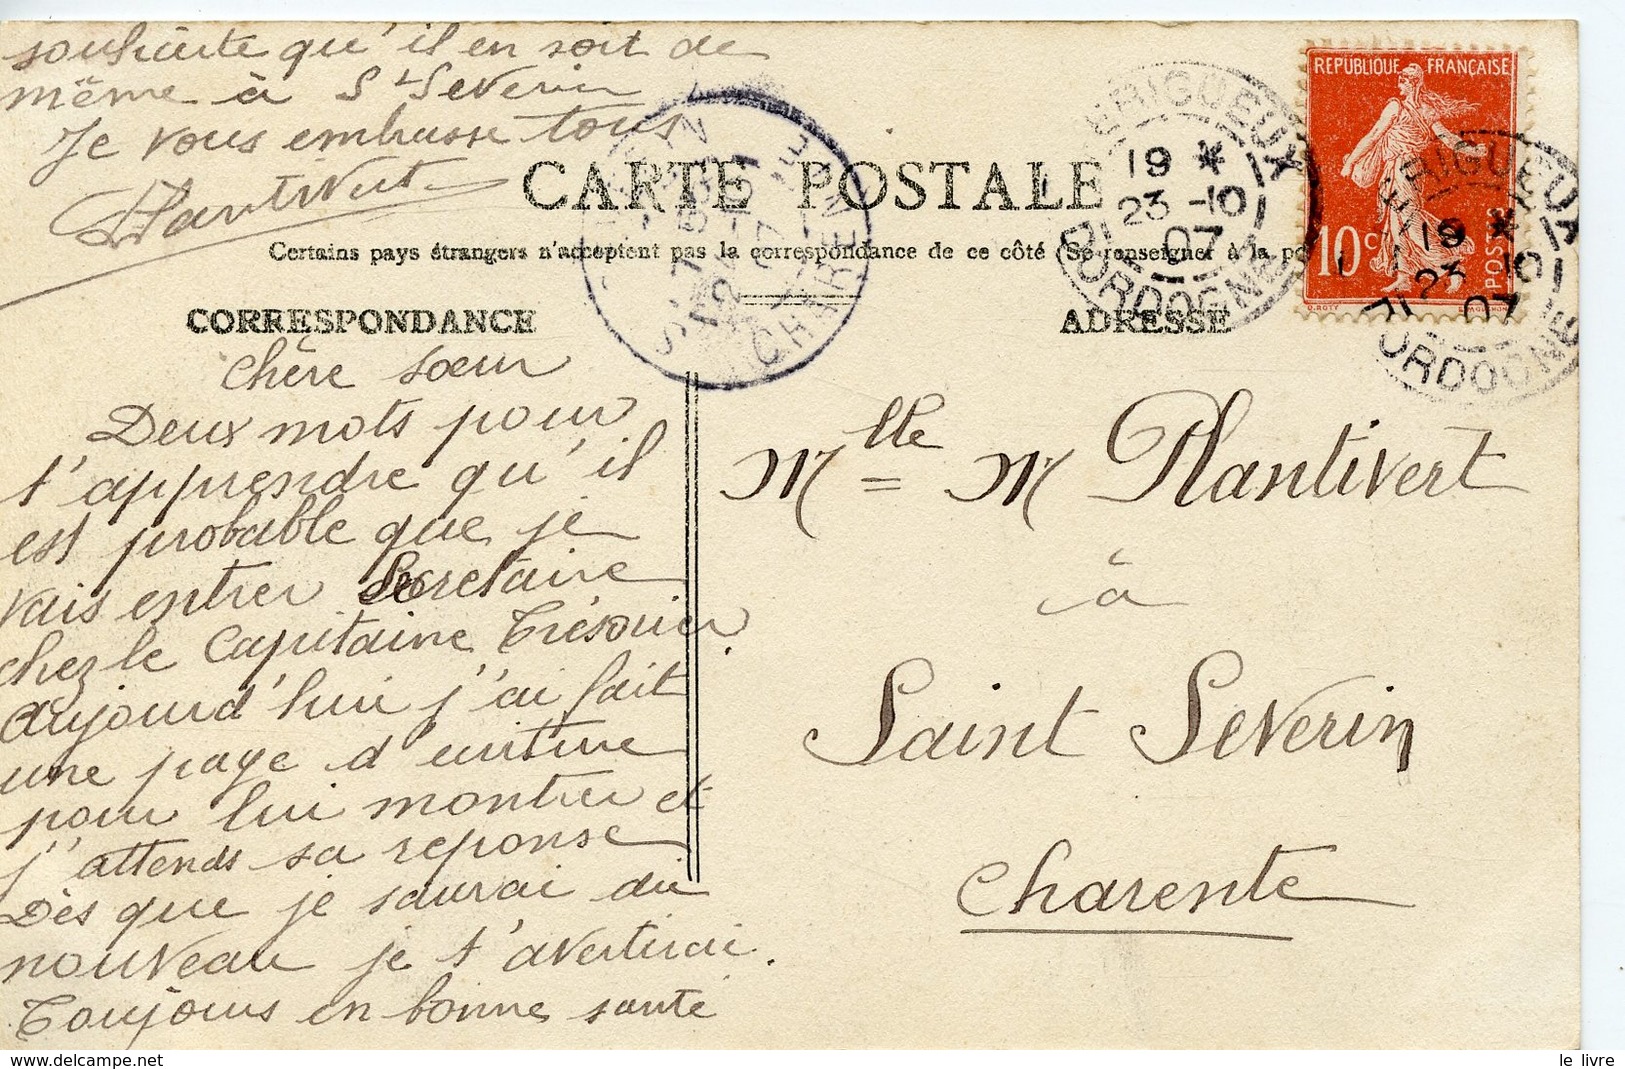 souhaite qu'il en soit de
même à St Severin
Je vous embrasse tous
Plantivert
CARTE POSTALE
Certains pays étrangers n'acceptent pas la correspondance de ce côté (Se renseigner à la po
CORRESPONDANCE
Chère sœur
Deux mots pour
t'apprendre qu'il
est probable que je
vais entrer Secretaire
chez le Capitaine Trésorier.
Aujourd'hui j'ai fait
une page d'ecriture
pour lui montrer et
j'attends sa reponse
Dès que je saurai du
nouveau je t'avertirai.
Toujours en bonne santé
ADRESSE
Mlle M Plantivert
à
Saint Severin
Charente
REPUBLIQUE FRANÇAISE
10c
POSTES
O. ROTY
PERIGUEUX
19 *
23 -10
07
DORDOGNE
PERIGUEUX
19 *
23 10
07
DORDOGNE
CHARENTE
le livre